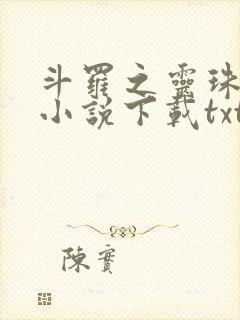 斗羅之靈珠
小說下載txt
陳實